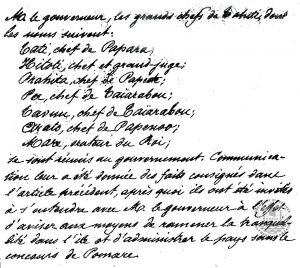 M. le gouverneur, les grands chefs de Tahiti, dont
les noms suivent:
Tati, chef de Papara;
Hitoti, chef et grand-juge;
chef de
Pee, chef de Taïarabou;
chef de Taïarabou;
chef de Papenoo;
Mare, orateur du Roi;
se sont réunis au gouvernement. Communica-
tion leur a été donnée des faits consignés dans
l'article précédent, après quoi ils ont été invités
à s'entendre avec M. le gouverneur à l'effet
d'aviser aux moyens de ramener la tranquil-
lité dans l'île et d'administrer le pays sans le
concours de Pomare